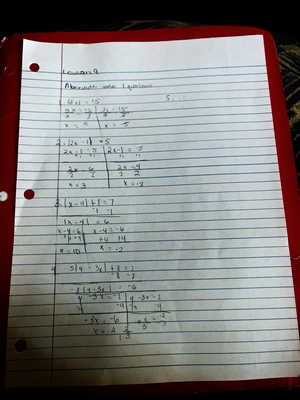 Lesson 9
Absolute value Equations
1. |3x| = 15
5.
3x = 15 | 3x = -15
3 3 | 3 3
x = 5 | x = -5
2. |2x - 1| = 5
2x - 1 = 5 | 2x - 1 = -5
+1 +1 | +1 +1
2x = 6 | 2x = -4
2 2 | 2 2
x = 3 | x = -2
3. |x - 4| + 1 = 7
-1 -1
|x - 4| = 6
x - 4 = 6 | x - 4 = -6
+4 +4 | +4 +4
x = 10 | x = -2
4. -3|4 - 3x| + 8 = 2
-8 -8
-3|4 - 3x| = -6
4 - 3x = -2 | 4 - 3x = 2
-4 -4 | -4 -4
-3x = -6
x = 2